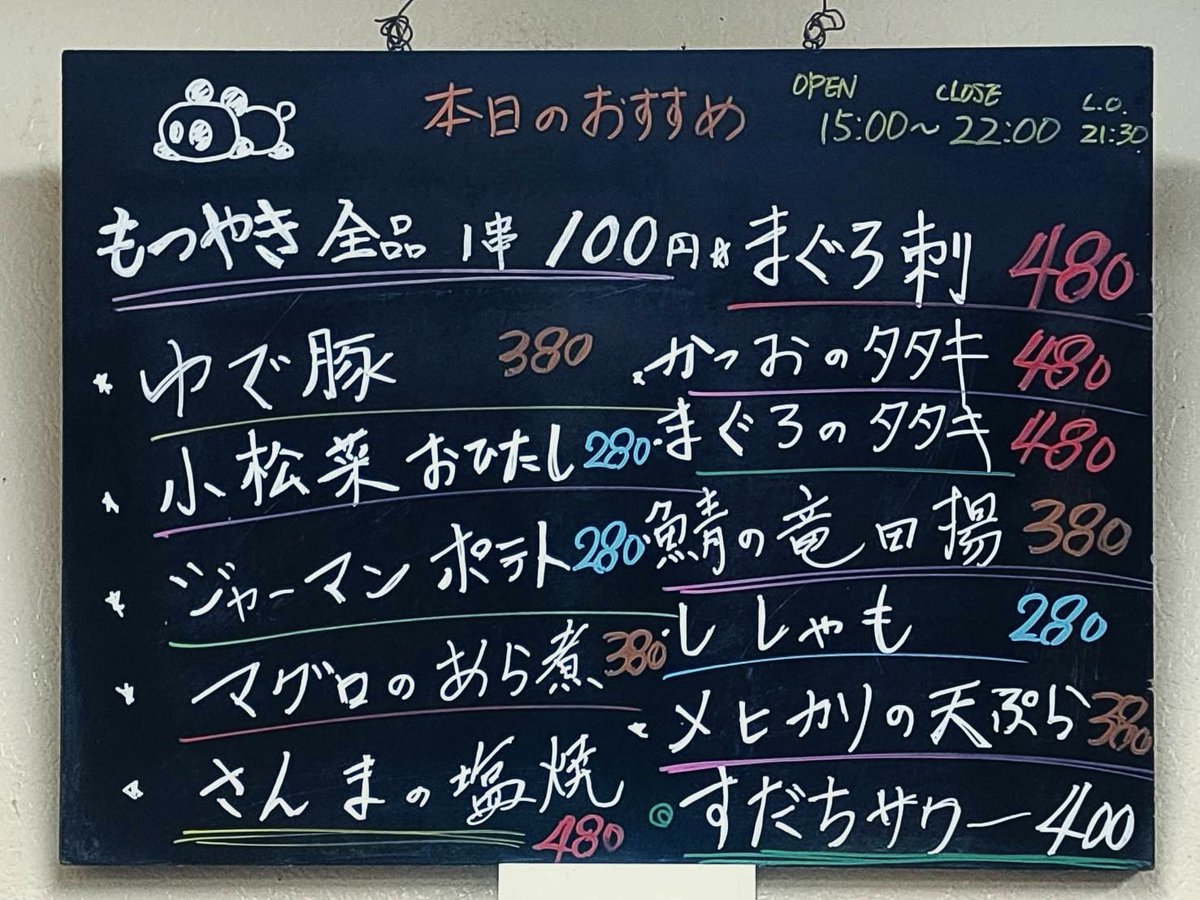 本日のおすすめ
OPEN CLOSE L.O.
15:00～22:00 21:30
もつやき 全品 1串 100円
ゆで豚 380
小松菜 おひたし 280
ジャーマンポテト 280
マグロのあら煮 380
さんまの塩焼 480
まぐろ刺 480
かつおのタタキ 480
まぐろのタタキ 480
鯖の竜田揚 380
ししゃも 280
メヒカリの天ぷら 380
すだちサワー 400